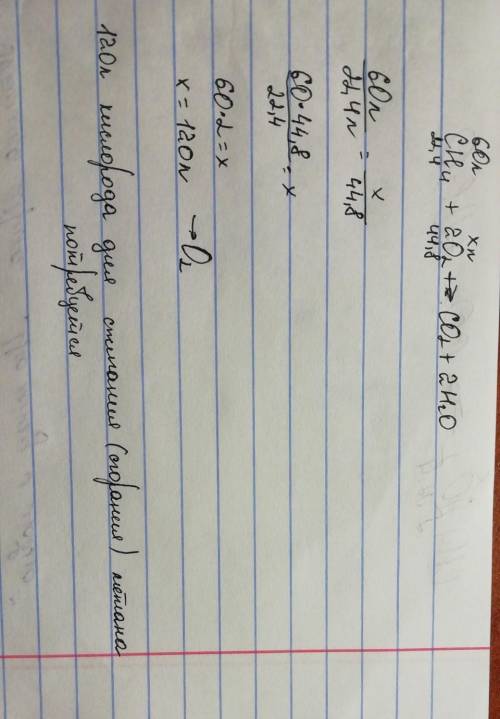 60л хл
CH₄ + 2O₂ +→ CO₂ + 2H₂O
22,4 44,8
60л/22,4л = x/44,8
60·44,8/22,4 = x
60·2=x
x = 120л → O₂
120л кислорода для сжигания (сгорания) метана
потребуется